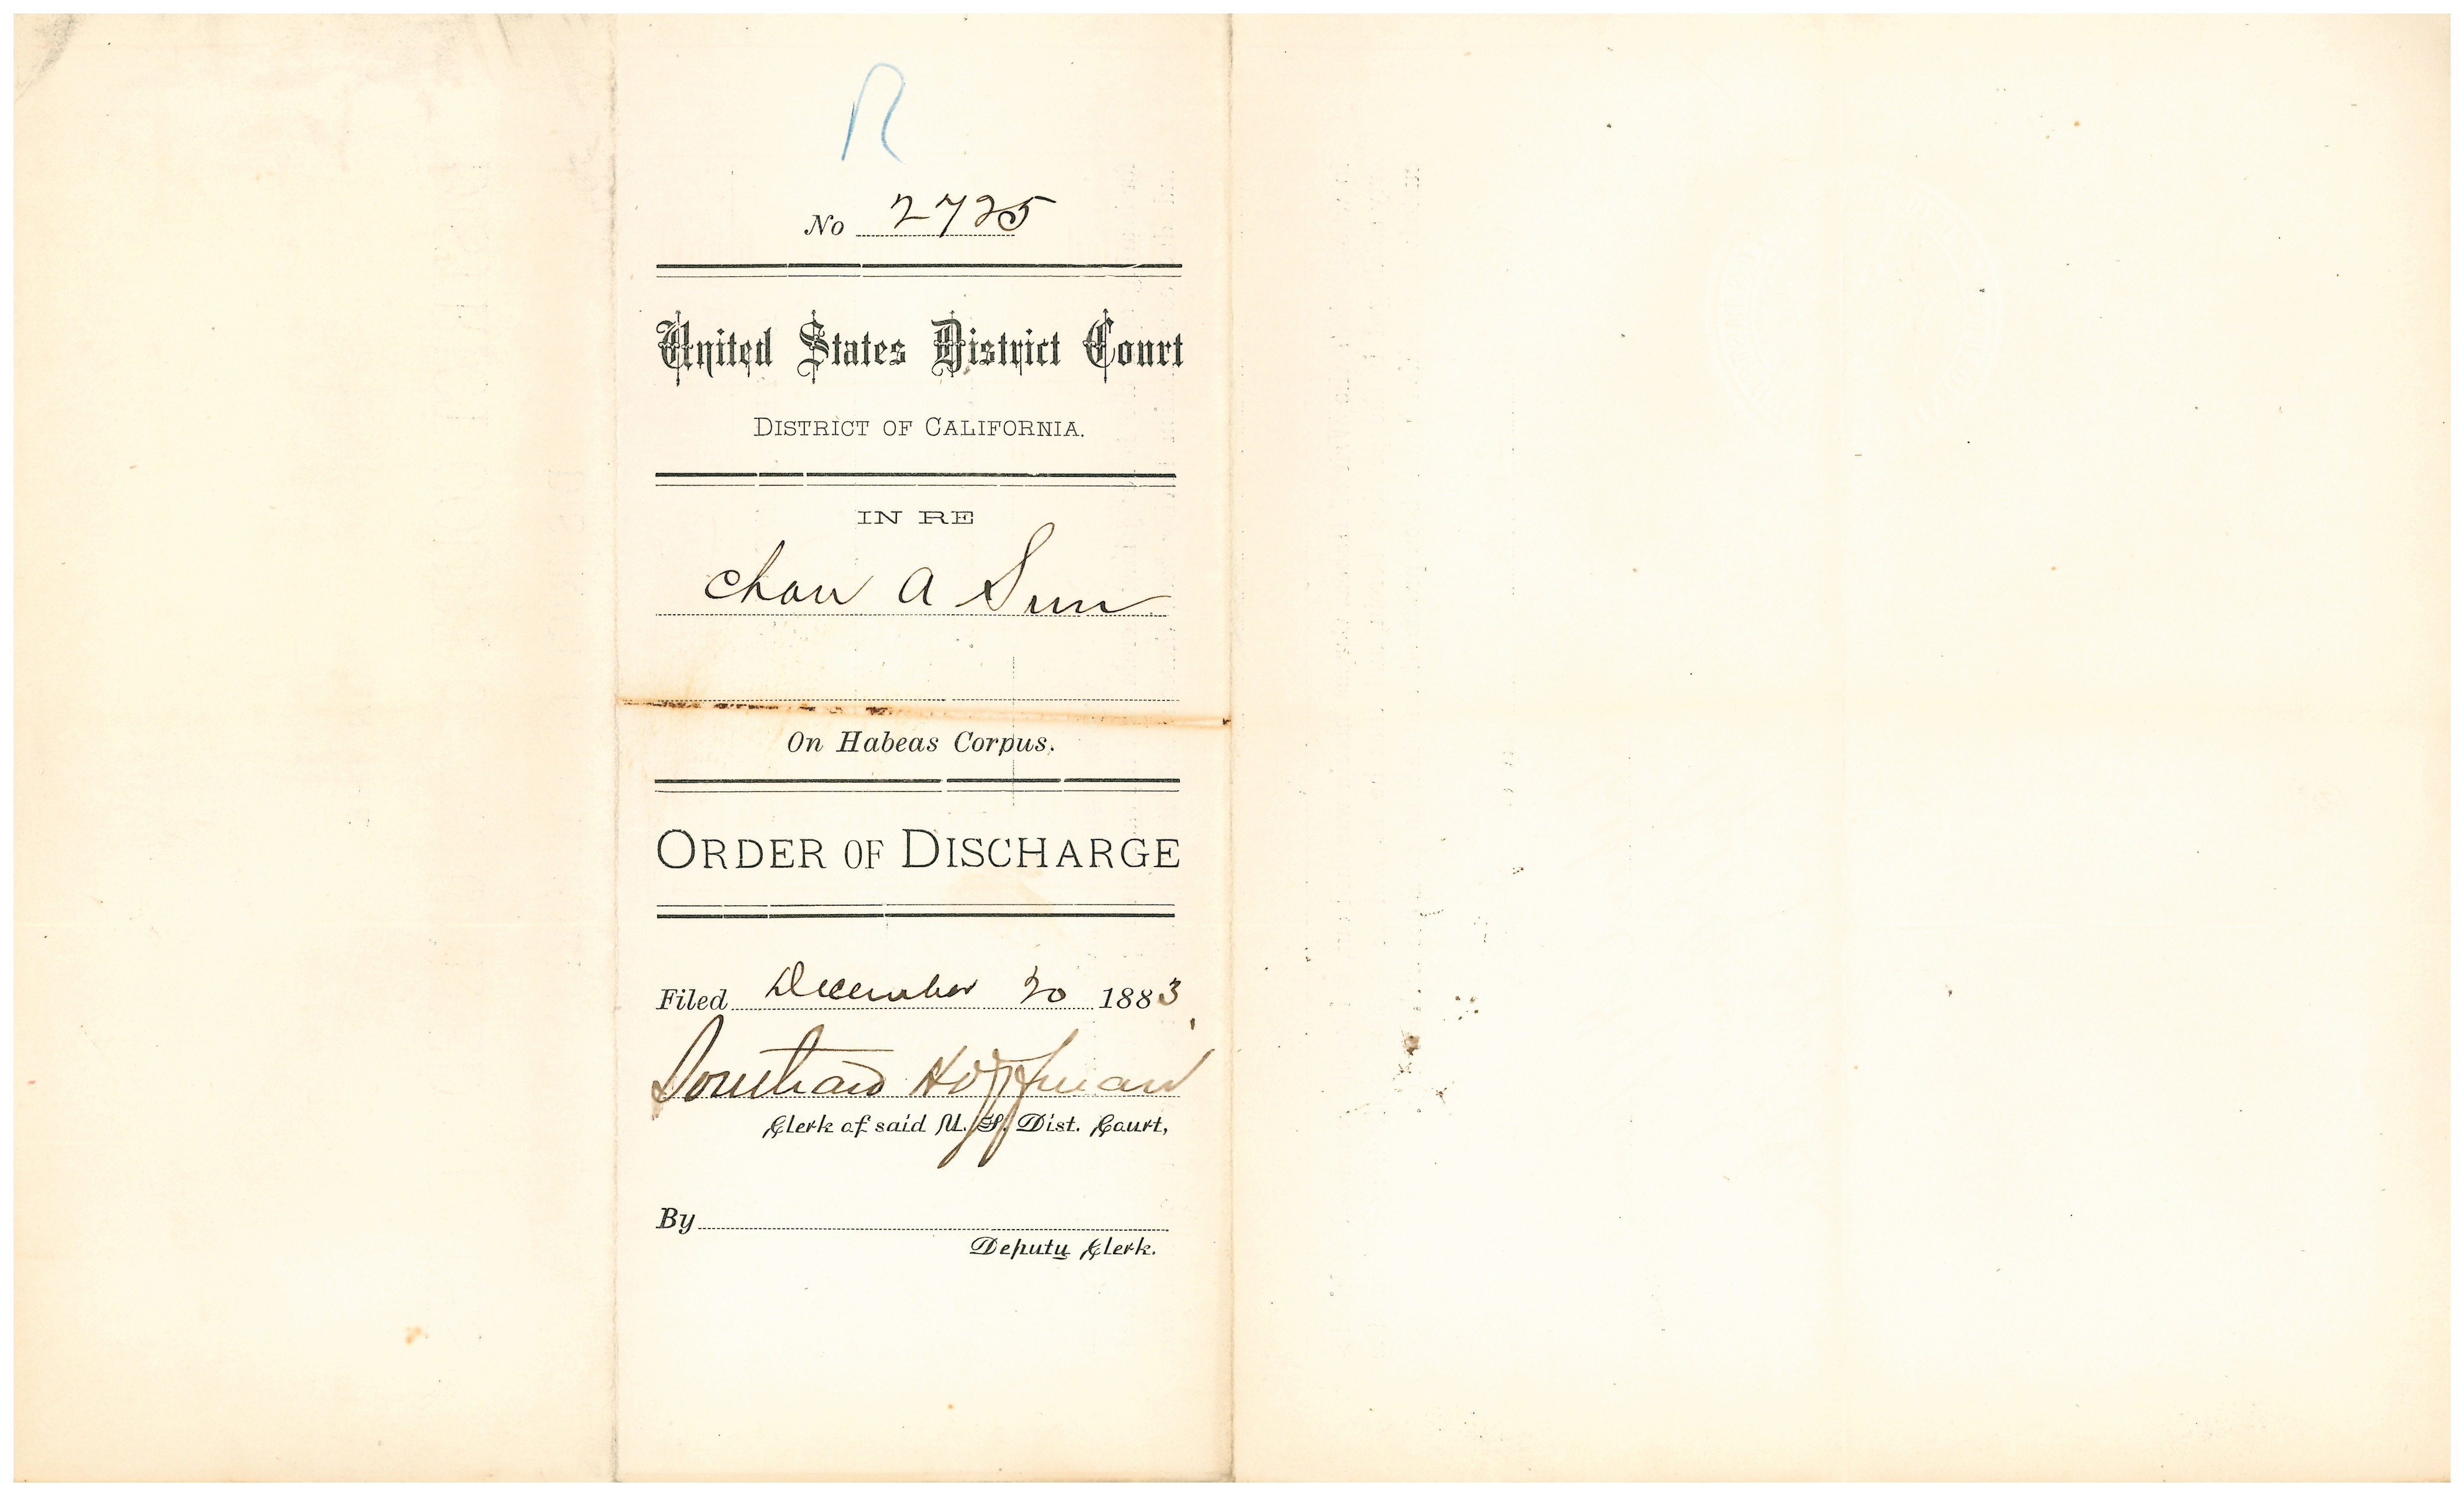 R
No 2725
United States District Court
DISTRICT OF CALIFORNIA.
IN RE
Chow A Sun
On Habeas Corpus.
ORDER OF DISCHARGE
Filed December 20 1883
Southard Hoffman
Clerk of said U. S. Dist. Court,
By
Deputy Clerk.